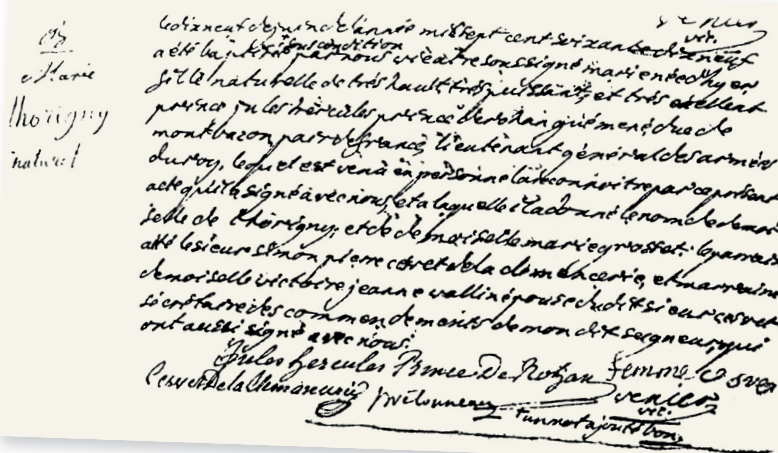 venier
vic.
Marie
thorigny
naturel
le dixneuf de juin de l'année mil sept cent soixante dix neuf
a été baptisée sous condition par nous vicaire soussigné marie née d'hyer
fille naturelle de très haut très puissant, et très exellent
prince jules hércules prince de rohan guémené, duc de
montbazon pair de france, lieutenant général des armées
du roy, lequel est venu en personne la reconnoitre par ce présent
acte qu'il a signé avec nous, et a laquelle il a donné le nom de demoi
selle de thorigny, et de demoiselle marie grosset. le parrain
été le sieur simon pierre ceret de la
demoiselle victoire jeanne wallin épouse du dit sieur ceret
sécrétaire des commendements de mon dit seigneur, qui
ont aussi signé avec nous.
Jules Hercules Prince De Rohan femme
venier
vic.
bon.